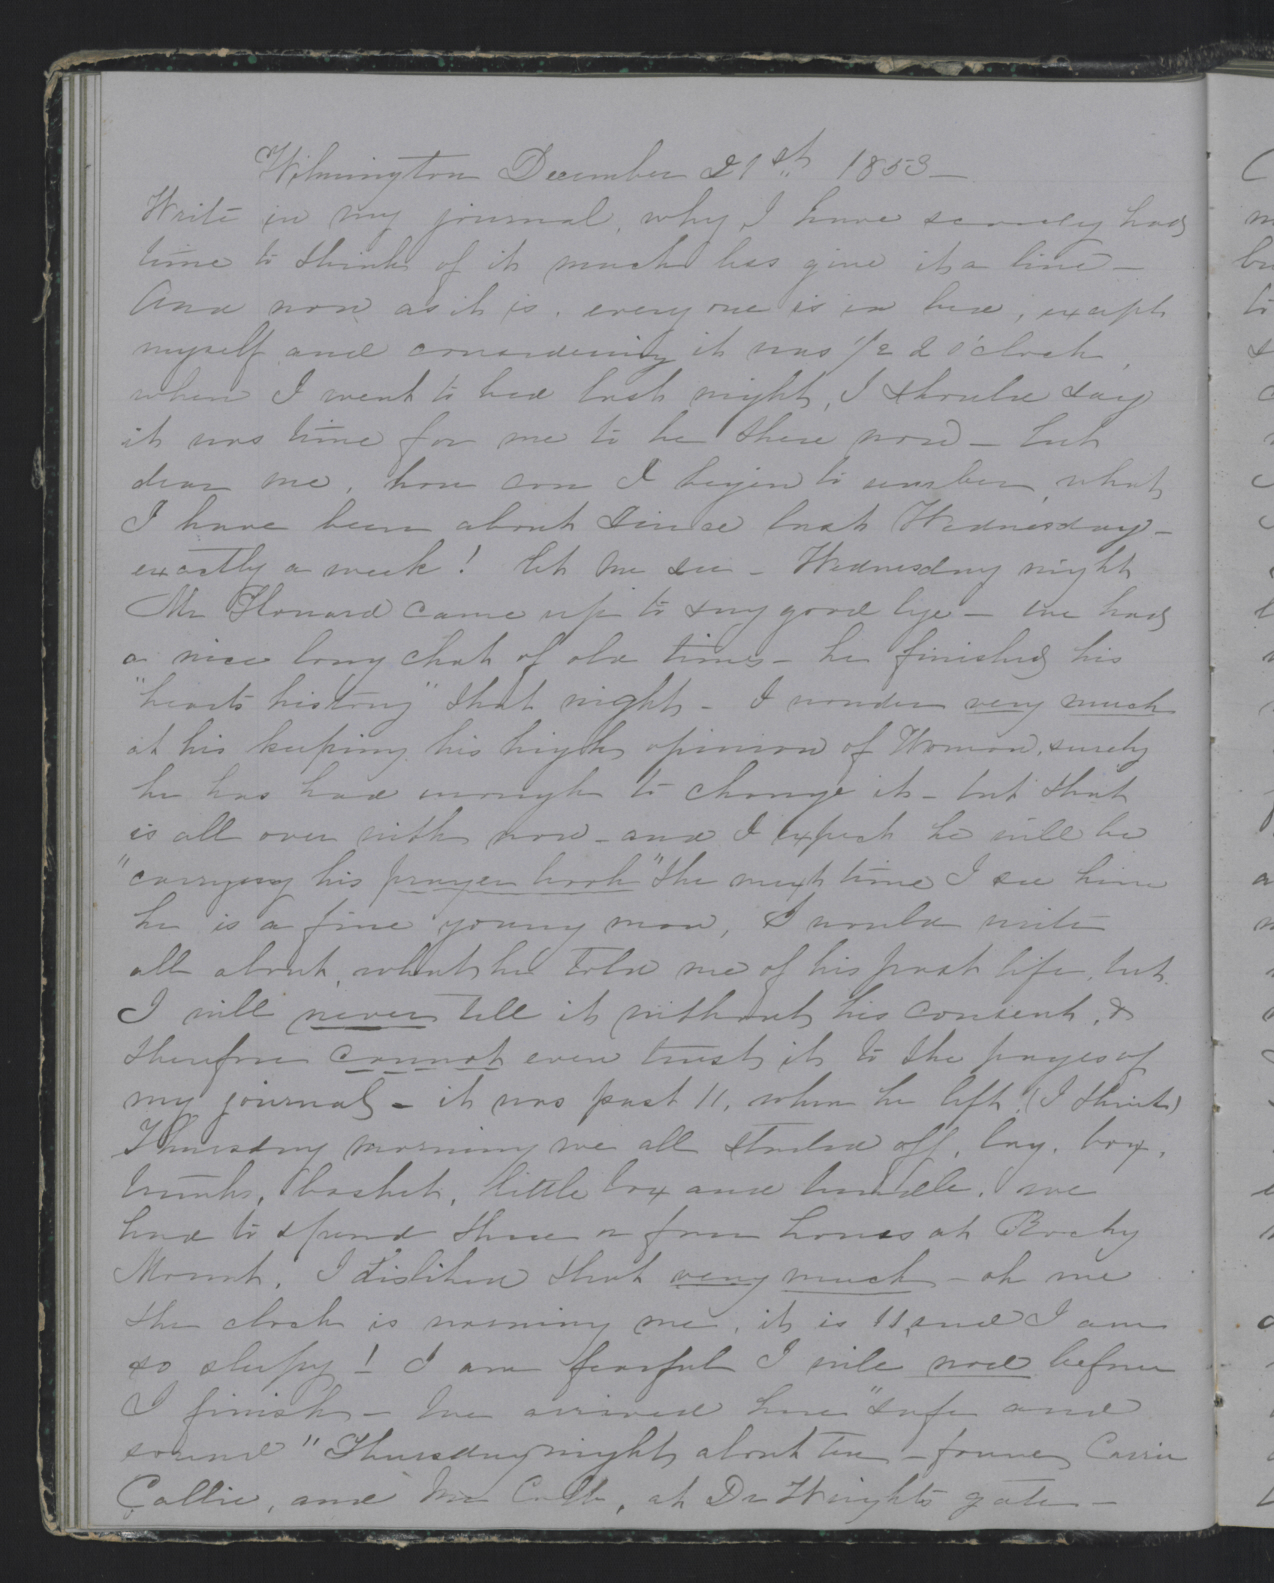 Wilmington December 21st 1853—
Write in my journal, why I have scarcely had
time to think of it much less give it a line—
And now as it is, every one is in bed, except
myself and considering it was 1/2 2 o'clock,
when I went to bed last night, I should say
it was time for me to be there now— but
dear me, how can I begin to number, what
I have been about since last Wednesday—
exactly a week! let me see— Wednesday night
Mr Howard came up to say good bye— we had
a nice long chat of old times— he finished his
"hearts history" that night— I wonder very much
at his keeping his high opinion of Woman, surely
he has had enough to change it— but that
is all over with now— and I expect he will be
"carrying his prayer book" the next time I see him
he is a fine young man, I would write
all about, what he told me of his past life, but
I will never tell it without his consent, &
therefore cannot even trust it to the pages of
my journal— it was past 11, when he left! (I think)
Thursday morning we all started off, bag, box,
trunks, basket, little box and bundle. we
had to spend three or four hours at Rocky
Mount, I disliked that very much— oh me
the clock is warning me, it is 11, and I am
so sleepy! I am fearful I will nod before
I finish— We arrived here "safe and
sound" Thursday night about ten— found Carrie
Callie, and Mr, at Dr Wright's gate—